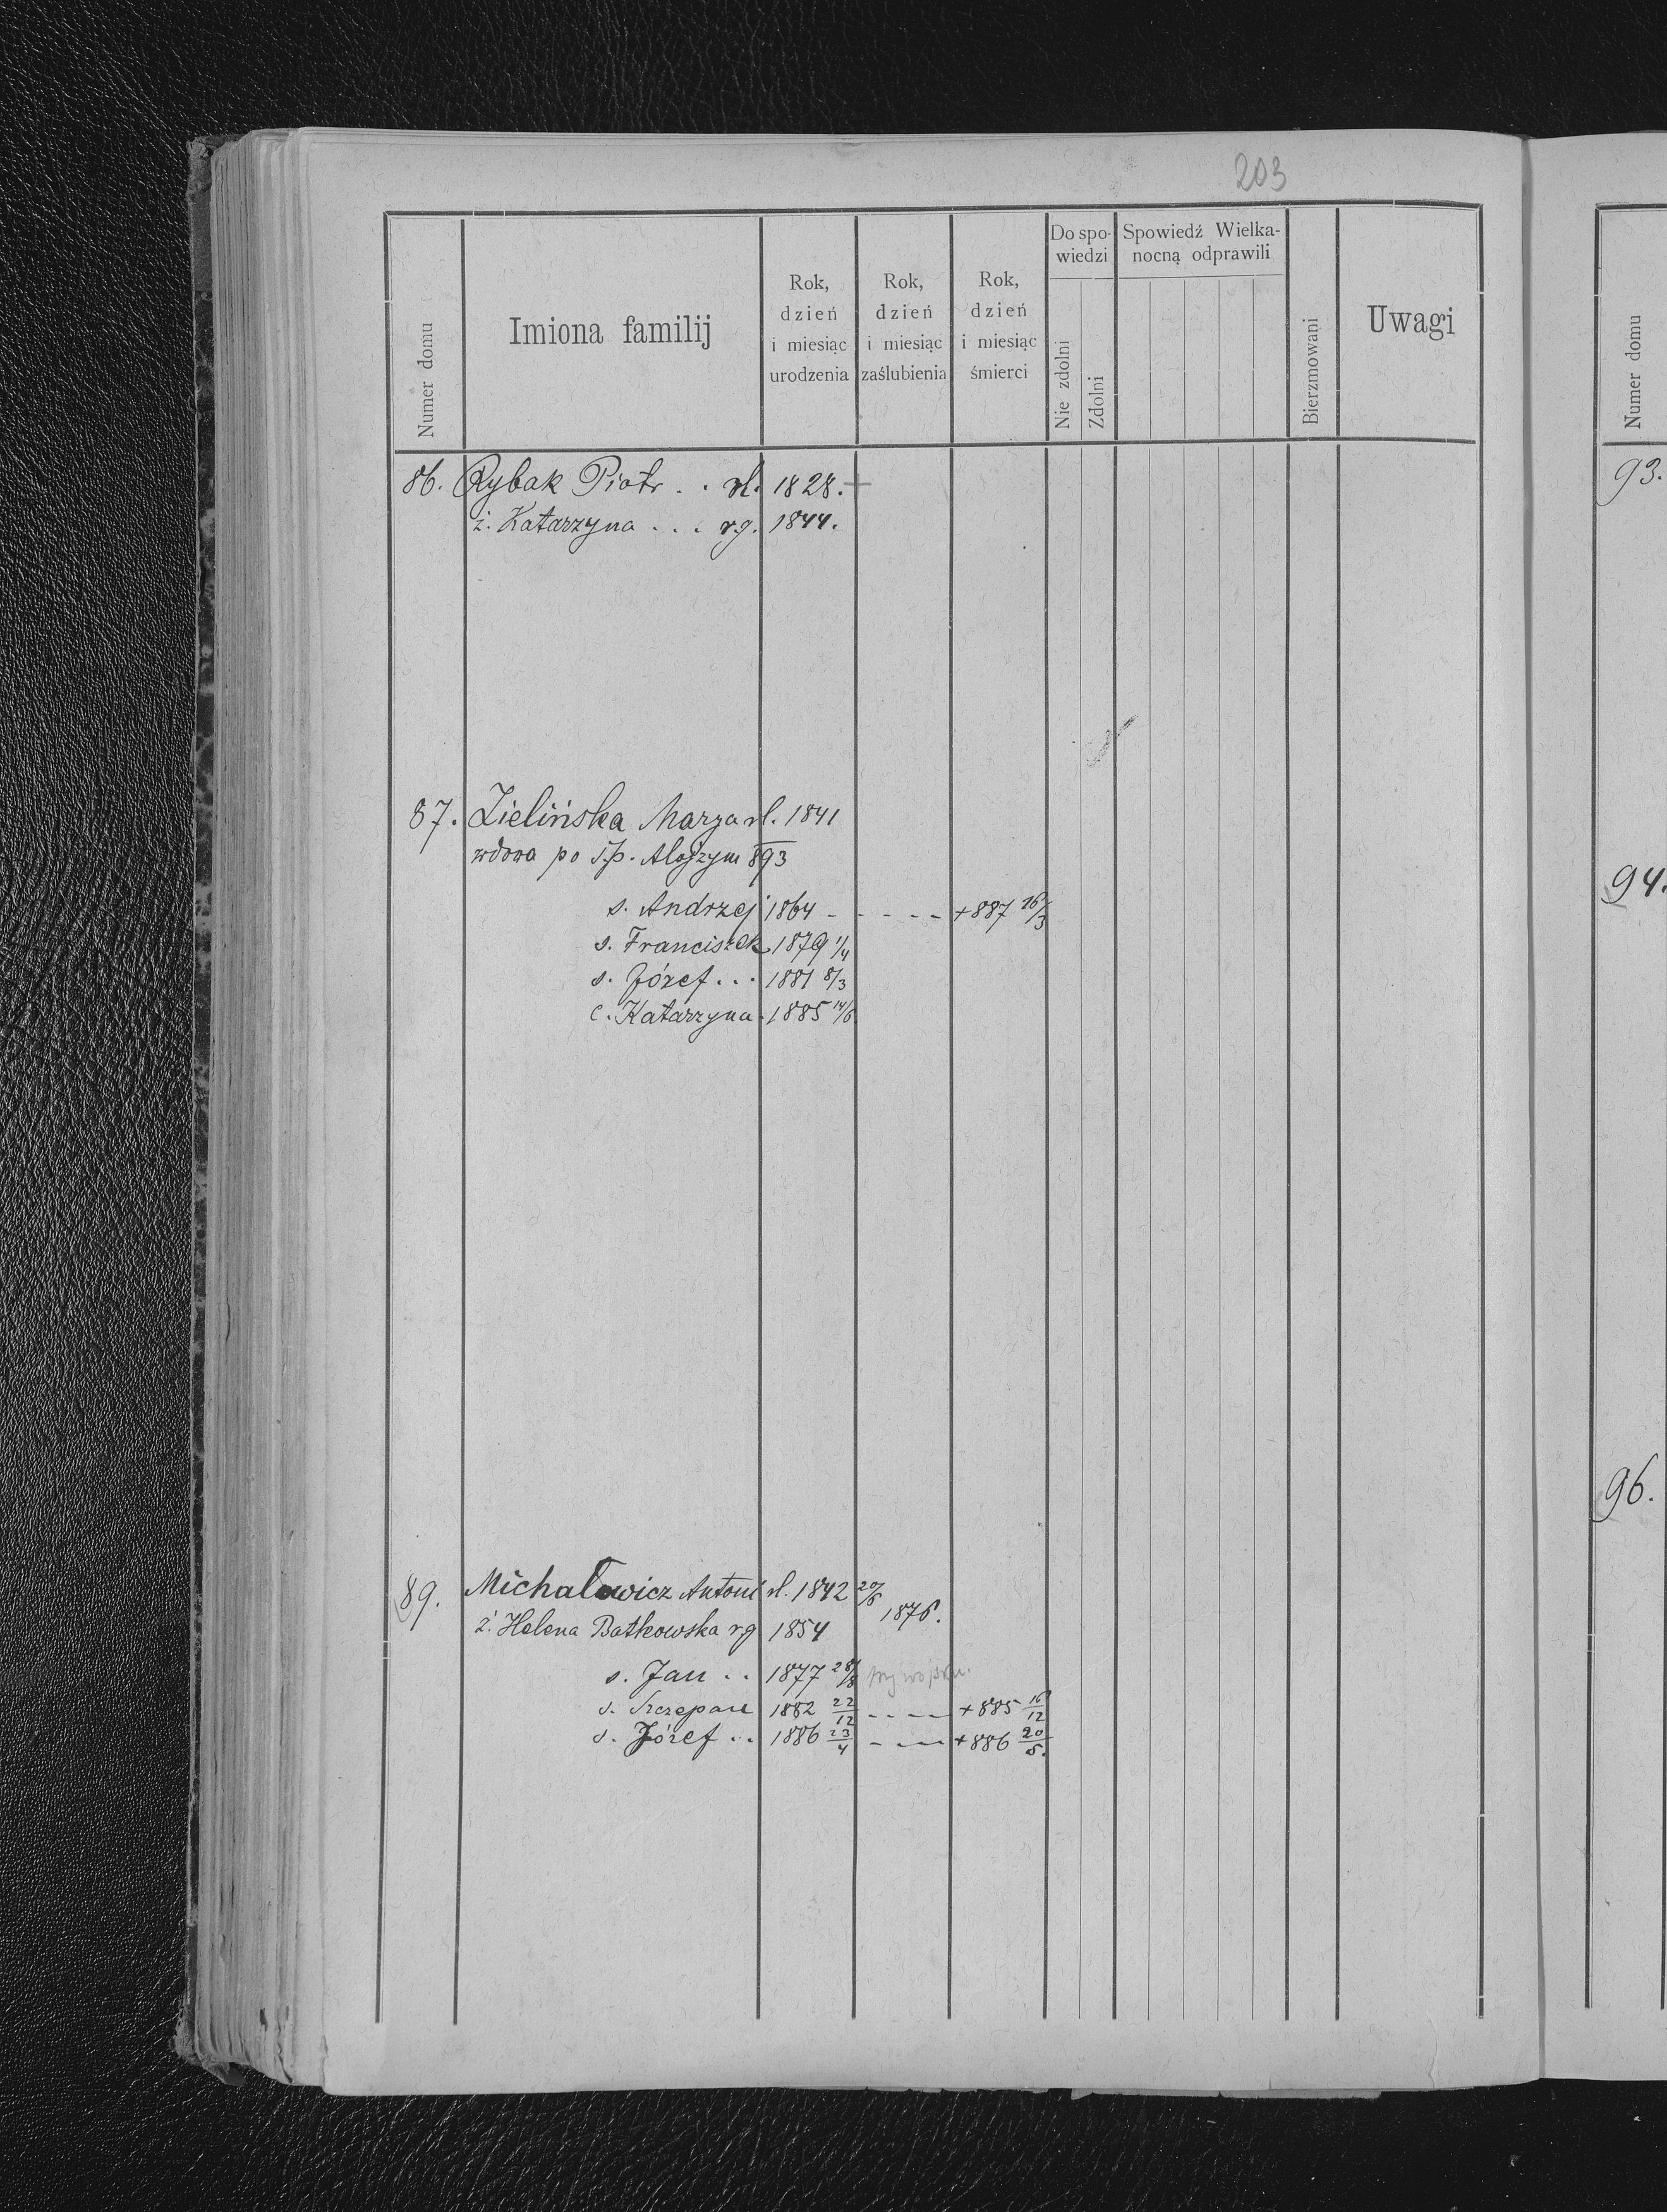 203
Numer domu
Imiona familij
Rok, dzień i miesiąc urodzenia
Rok, dzień i miesiąc zaślubienia
Rok, dzień i miesiąc śmierci
Do spo-
wiedzi
Nie zdolni
Zdolni
Spowiedź Wielka-
nocną odprawili
Bierzmowani
Uwagi
Numer domu
86. Rybak Piotr . . rl. 1828. +
ż. Katarzyna . . . rg. 1844.
87. Zielińska Marya rl. 1841
wdowa po ś.p. Alojzym 893
s. Andrzej 1864 - - - - - +887 16/3
s. Franciszek 1879 1/4
s. Józef . . . 1881 8/3
c. Katarzyna . 1885 14/6
89. Michalewicz Antoni rl. 1842 20/6 1876.
ż. Helena Batkowska rg 1854
s. Jan . . 1877 28/8
s. Szczepan 1882 22/12 - - - - +885 16/12
s. Józef . . 1886 23/4 - - - +886 20/5.
93.
94.
96.